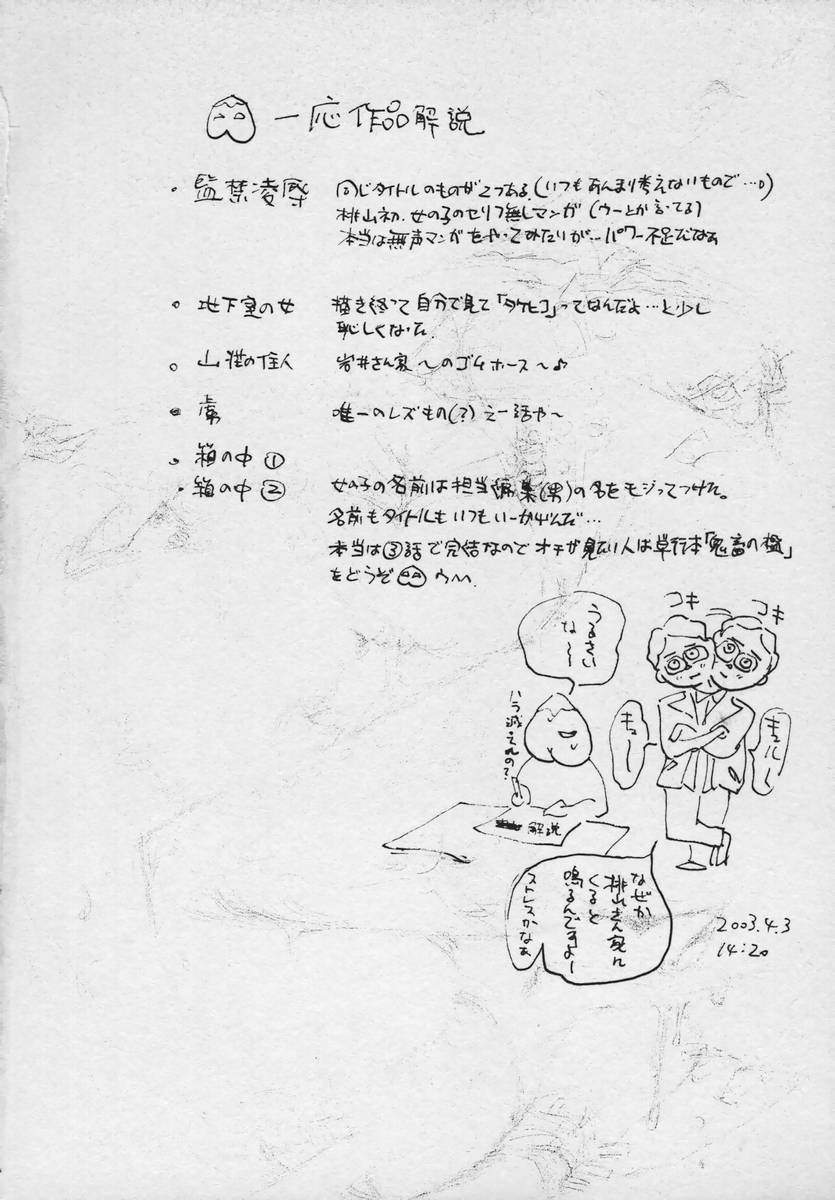 一応作品解説
・監禁凌辱 同じタイトルのものが2つある。(いつもあんまり考えないもので…。)
桃山初、女の子のセリフ無しマンガ (ウーとか言ってる)
本当は無声マンガをやってみたいが…パワー不足だなぁ
地下室の女 描き終って自分で見て「タケヒコ」ってなんだよ…と少し
恥しくなった
山荘の住人 岩井さん家〜のゴムホース〜♪
唯一のレズもの(?) えー話や〜
・箱の中①
・箱の中② 女の子の名前は担当編集(男)の名をモジってつけた。
名前もタイトルもいつもいーかげんだ…
本当は③話で完結なのでオチが見たい人は単行本「鬼畜の檻」
をどうぞ
コキ
コキ
うるさい
な〜〜
ハラ減ってんの?
キュー
キュルル〜
解説
なぜか
桃山さん家に
くると
鳴るんですよー
ストレスかなぁ
2003.4.3
14:20